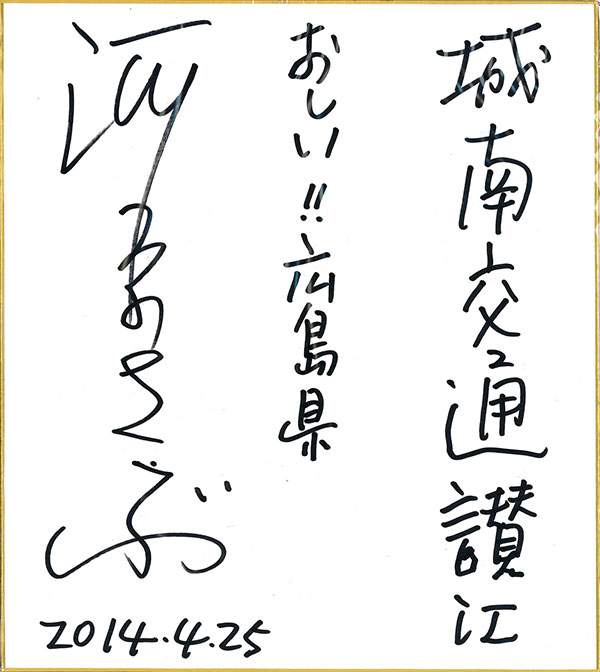 城南交通讃江
おしい!!広島県
河原さぶ
2014.4.25